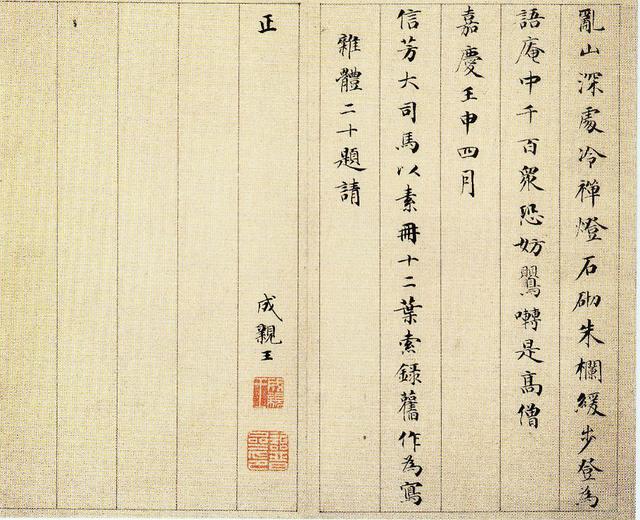 亂山深處冷禪燈石砌朱欄緩步登為
語庵中千百衆恐妨鸎囀是髙僧
嘉慶壬申四月
信芳大司馬以素冊十二葉索錄舊作為寫
雜體二十題請
正
成親王
成親王
詒晉齋印